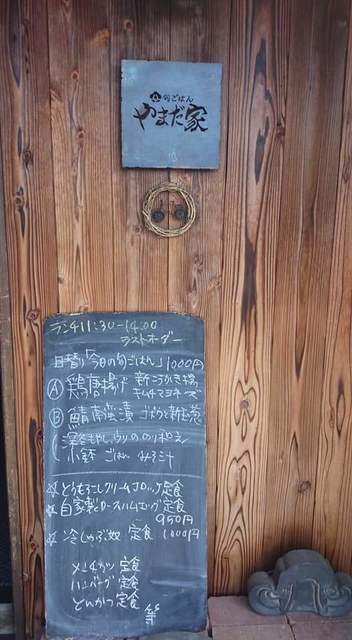 旬ごはん
やまだ家
ランチ11:30-14:00
ラストオーダー
日替り「今日の旬ごはん」1000円
Ⓐ 鶏唐揚げ 新ごぼうかき揚
キムチマヨネーズ
Ⓑ 鯖南蛮漬
小鉢 ごはん みそ汁
☆とうもろこしクリームコロッケ定食
☆自家製ロースハムエッグ定食
950円
☆冷しゃぶ奴 定食 1000円
メンチカツ 定食
ハンバーグ 定食
とんかつ 定食
等